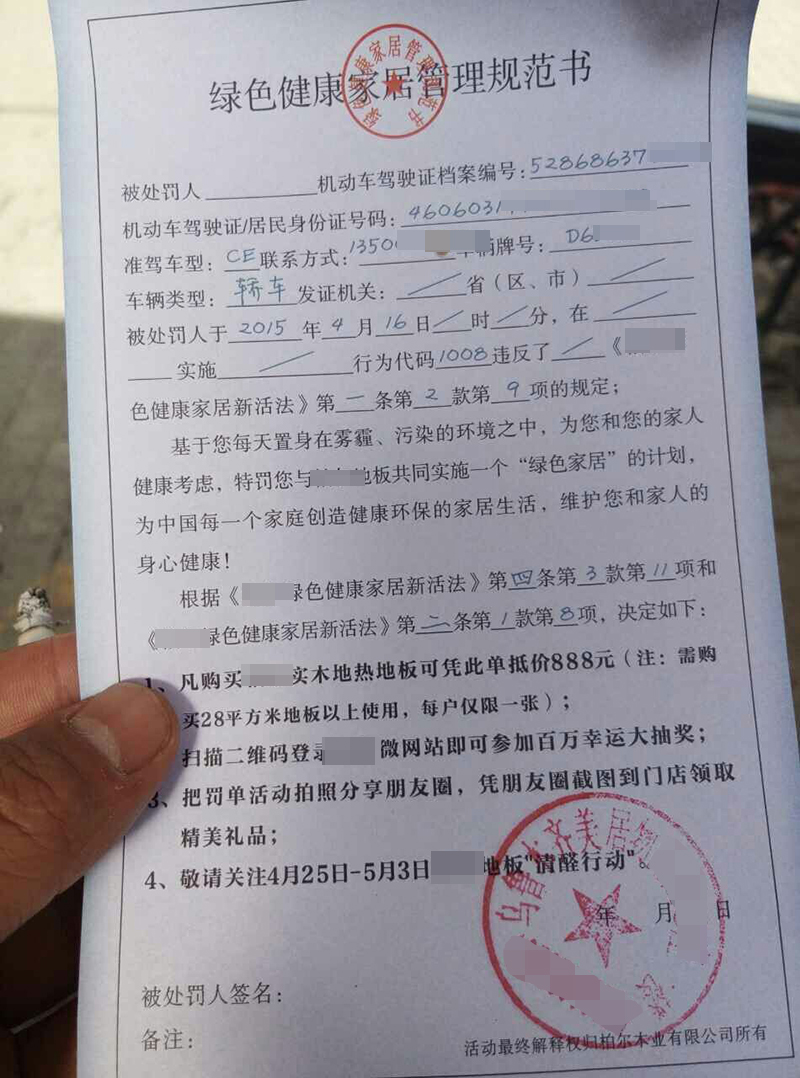 绿色健康家居管理规范书
被处罚人 机动车驾驶证档案编号:52868637
机动车驾驶证/居民身份证号码:4606031
准驾车型:CE联系方式:1350 车辆牌号:D6
车辆类型:轿车发证机关: 省(区、市)
被处罚人于2015年4月16日/时/分,在
实施 行为代码1008违反了/《
色健康家居新活法》第一条第2款第9项的规定;
基于您每天置身在雾霾、污染的环境之中,为您和您的家人
健康考虑,特罚您与 地板共同实施一个“绿色家居”的计划,
为中国每一个家庭创造健康环保的家居生活,维护您和家人的
身心健康!
根据《 绿色健康家居新活法》第四条第3款第11项和
《 绿色健康家居新活法》第二条第1款第8项,决定如下:
1、凡购买 实木地热地板可凭此单抵价888元(注:需购
买28平方米地板以上使用,每户仅限一张);
扫描二维码登录 微网站即可参加百万幸运大抽奖;
3、把罚单活动拍照分享朋友圈,凭朋友圈截图到门店领取
精美礼品;
4、敬请关注4月25日-5月3日 地板"清醛行动"。
年 月 日
乌鲁木齐美居物
被处罚人签名:
备注:
活动最终解释权归柏尔木业有限公司所有